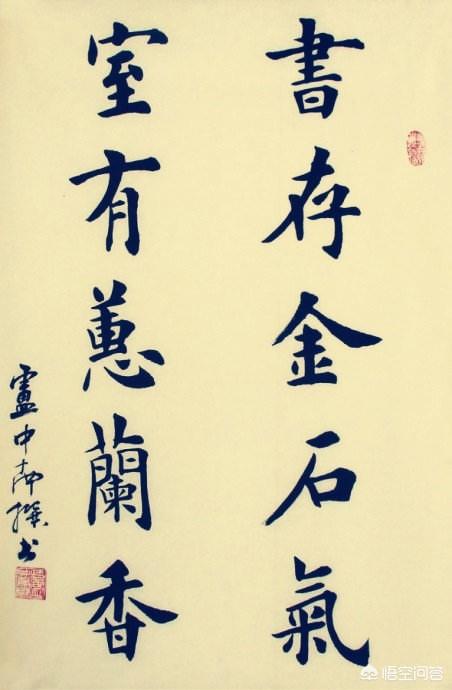 書存金石氣
室有蕙蘭香
盧中南撰书
悟空问答